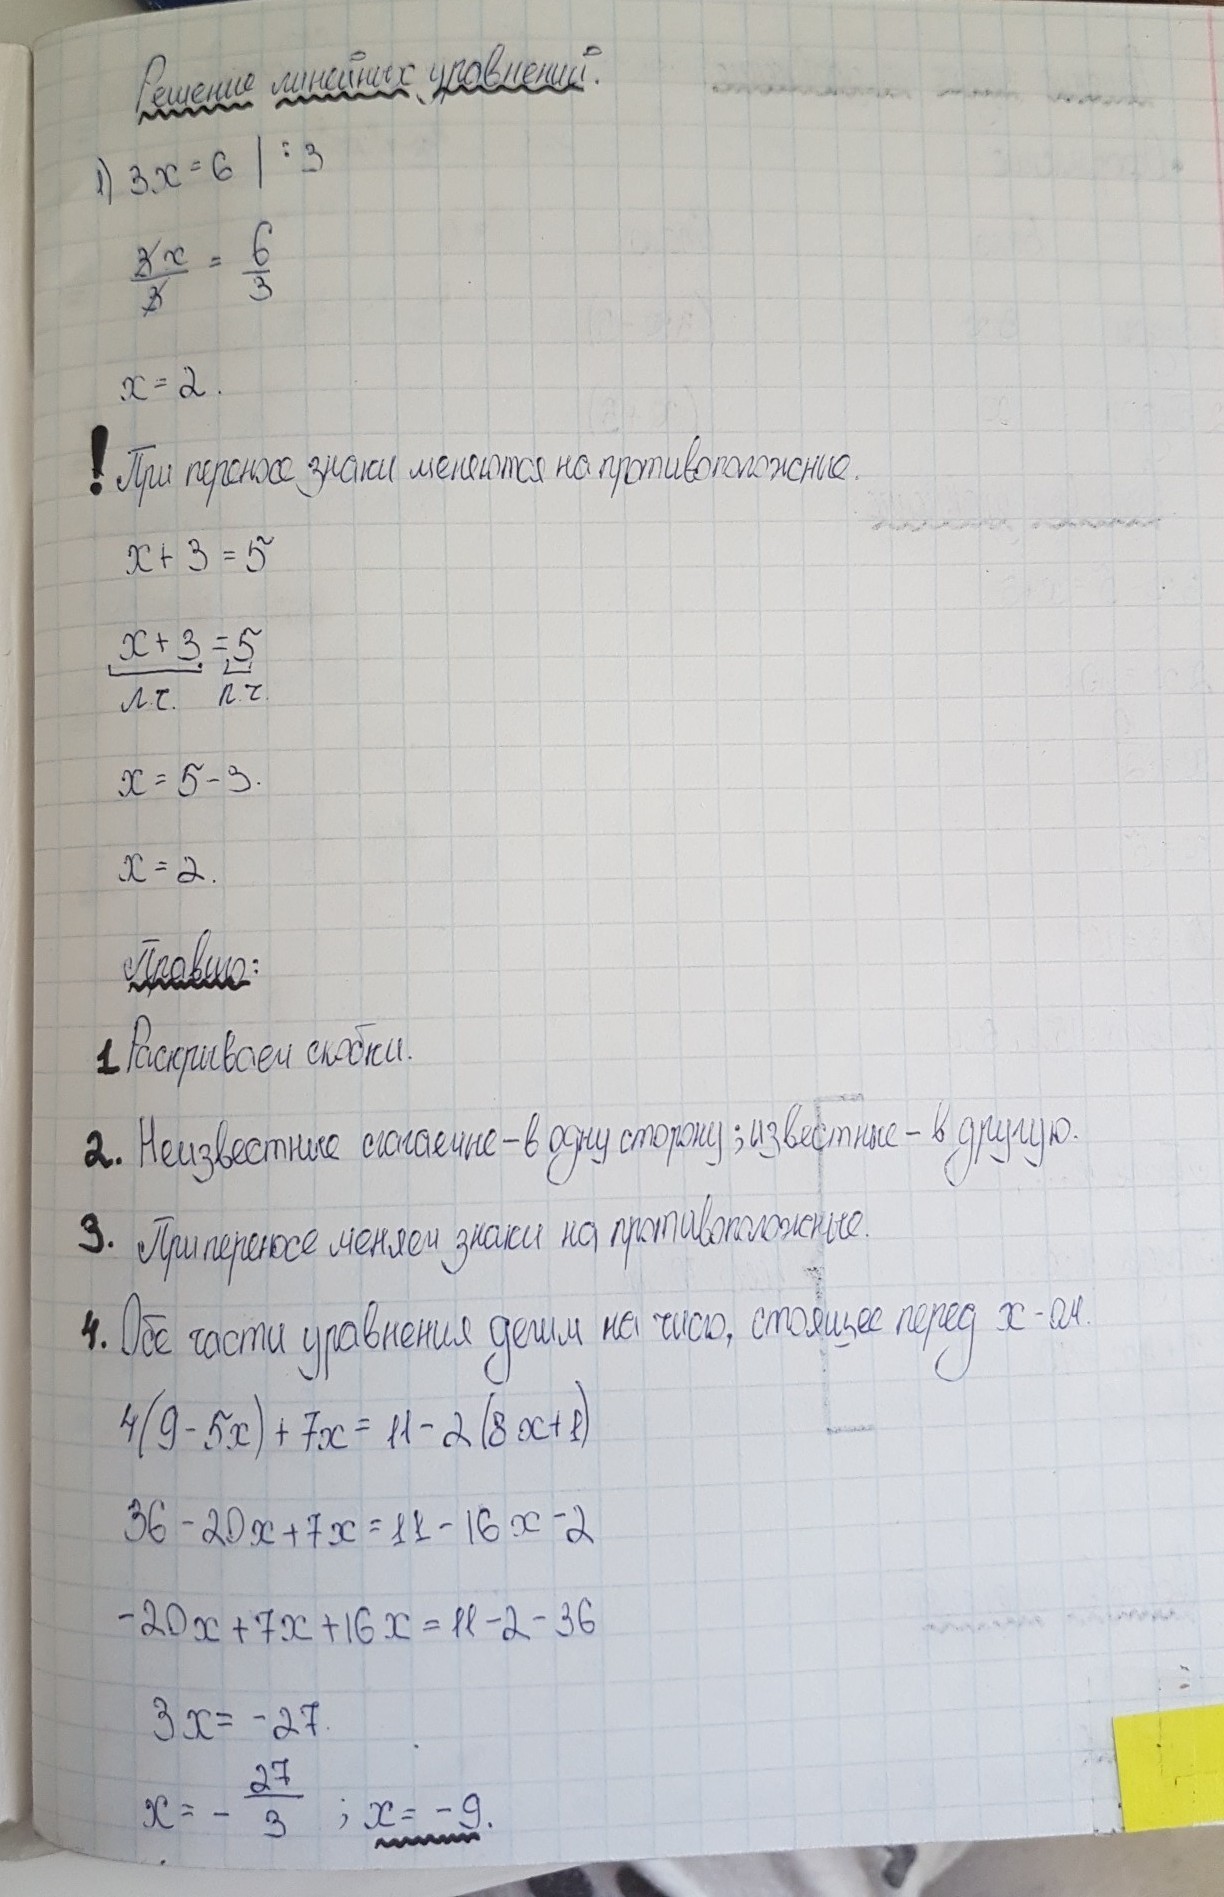 Решение линейных уравнений.
1) 3x = 6 | : 3
3x/3 = 6/3
x = 2.
! При переносе знаки меняются на противоположные.
x + 3 = 5
x + 3 = 5
л.ч. п.ч.
x = 5 - 3.
x = 2.
Правило:
1 Раскрываем скобки.
2. Неизвестные слагаемые - в одну сторону; известные - в другую.
3. При переносе меняем знаки на противоположные.
4. Обе части уравнения делим на число, стоящее перед x-ом.
4(9 - 5x) + 7x = 11 - 2(8x + 1)
36 - 20x + 7x = 11 - 16x - 2
-20x + 7x + 16x = 11 - 2 - 36
3x = -27.
x = - 27/3 ; x = -9.